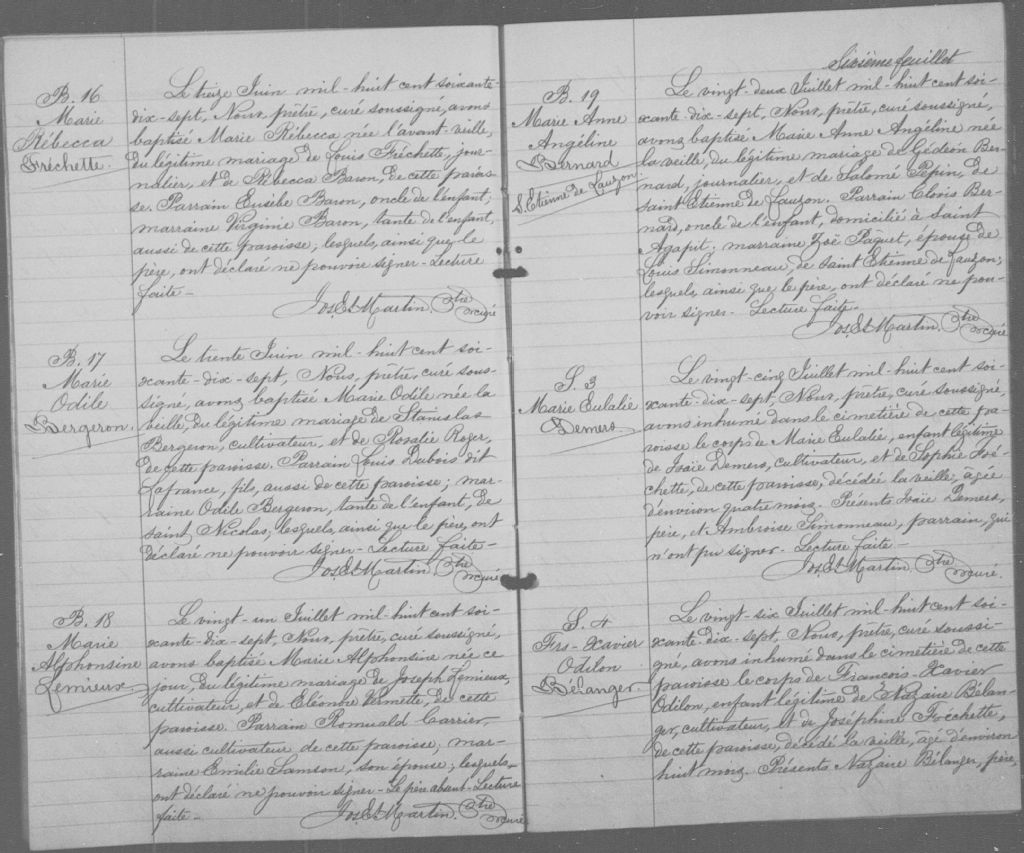 B. 16
Marie
Rébecca
Fréchette.
Le treize Juin mil-huit cent soixante-
dix-sept, Nous, prêtre, curé soussigné, avons
baptisé Marie Rébecca née l'avant-veille,
du légitime mariage de Louis Fréchette, jour-
nalier, et de Rébecca Baron, de cette parois-
se. Parrain Eusèbe Baron, oncle de l'enfant;
marraine Virginie Baron, tante de l'enfant,
aussi de cette paroisse; lesquels, ainsi que le
père, ont déclaré ne pouvoir signer - Lecture
faite -
Jos. Et. Martin, Ptre
curé
B. 17
Marie
Odile
Bergeron.
Le trente Juin mil-huit cent soi-
xante-dix-sept, Nous, prêtre, curé sous-
signé, avons baptisé Marie Odile née la
veille, du légitime mariage de Stanislas
Bergeron, cultivateur, et de Rosalie Roger,
de cette paroisse. Parrain Louis Dubois dit
Lafrance, fils, aussi de cette paroisse; mar-
raine Odile Bergeron, tante de l'enfant, de
saint Nicolas, lesquels, ainsi que le père, ont
déclaré ne pouvoir signer - Lecture faite -
Jos. Et. Martin, Ptre
curé
B. 18
Marie
Alphonsine
Lemieux.
Le vingt-un Juillet mil-huit cent soi-
xante-dix-sept, Nous, prêtre, curé soussigné,
avons baptisé Marie Alphonsine née ce
jour, du légitime mariage de Joseph Lemieux,
cultivateur, et de Eléonre Vermette, de cette
paroisse. Parrain Romuald Carrier,
aussi cultivateur de cette paroisse; mar-
raine Emilie Samson, son épouse; lesquels
ont déclaré ne pouvoir signer - Le père absent - Lecture
faite -
Jos. Et. Martin, Ptre
curé
Sixième feuillet
B. 19
Marie Anne
Angéline
Bernard
S. Etienne de Lauzon.
Le vingt-deux Juillet mil-huit cent soi-
xante-dix-sept, Nous, prêtre, curé soussigné,
avons baptisé Marie Anne Angéline née
la veille, du légitime mariage de Gédéon Ber-
nard, journalier, et de Salomé Pépin, de
saint Etienne de Lauzon. Parrain Clovis Ber-
nard, oncle de l'enfant, domicilié à Saint
Agapit; marraine Zoë Paquet, épouse de
Louis Simonneau, de saint Etienne de Lauzon;
lesquels, ainsi que le père, ont déclaré ne pou-
voir signer - Lecture faite -
Jos. Et. Martin, Ptre
curé
S. 3
Marie Eulalie
Demers
Le vingt-cinq Juillet mil-huit cent soi-
xante-dix-sept, Nous, prêtre, curé soussigné,
avons inhumé dans le cimetière de cette pa-
roisse le corps de Marie Eulalie, enfant légitime
de Isaïe Demers, cultivateur, et de Sophie Fré-
chette, de cette paroisse, décédée la veille, âgée
d'environ quatre mois. Présents Isaïe Demers,
père, et Ambroise Simonneau, parrain, qui
n'ont pu signer. Lecture faite -
Jos. Et. Martin, Ptre
curé.
S. 4
Frs-Xavier
Odilon
Bélanger.
Le vingt-six Juillet mil-huit cent soi-
xante-dix-sept, Nous, prêtre, curé soussi-
gné, avons inhumé dans le cimetière de cette
paroisse le corps de François-Xavier
Odilon, enfant légitime de Nazaire Bélan-
ger, cultivateur, et de Joséphine Fréchette,
de cette paroisse, décédé la veille, âgé d'environ
huit mois. Présents Nazaire Bélanger, père,